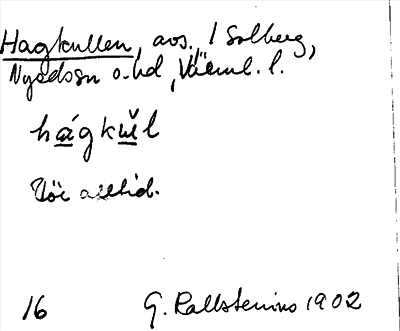 Hagkullen, avs., / Solberg,
Nyedsn o. hd, Värml. l.
hágkŭl
alltid.
16 G. Kallstenius 1902